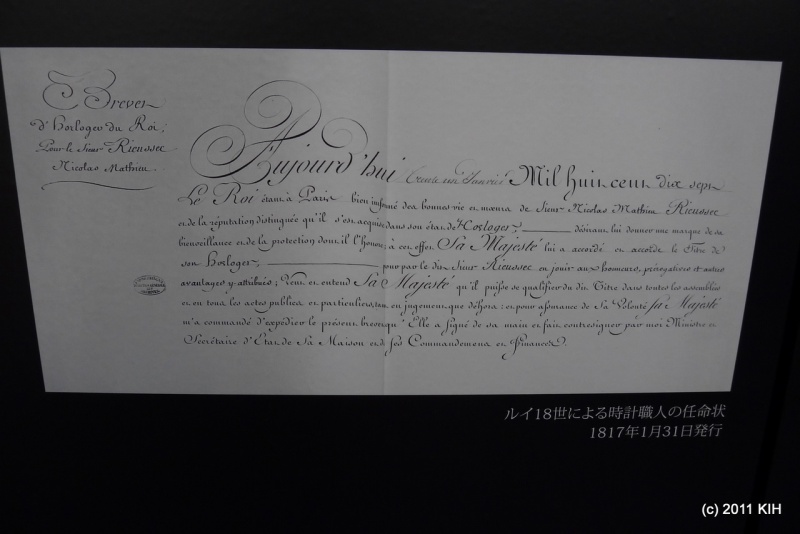 Brevet
d'Horloger du Roi;
Pour le Sieur Rieussec
Nicolas Mathieu.
Aujourd'hui trente un Janvier Mil huit cent dix sept
Le Roi étant à Paris bien informé des bonnes vie et mœurs de Sieur Nicolas Mathieu Rieussec
et de la réputation distinguée qu'il s'est acquise dans son état d'Horloger, désirant lui donner une marque de sa
bienveillance et de la protection dont il l'honore; à cet effet Sa Majesté lui a accordé et accorde le Titre de
son Horloger, pour par le dit Sieur Rieussec en jouir aux honneurs, prérogatives et autres
avantages y attribués; Veut et entend Sa Majesté qu'il puisse se qualifier du dit Titre dans toutes les assemblées
et en tous les actes publics et particuliers, tant en jugement que déhors: et pour assurance de Sa Volonté Sa Majesté
m'a commandé d'expédier le présent brevet qu'Elle a signé de sa main et fait contresigner par moi Ministre et
Secrétaire d'État de Sa Maison et de ses Commandemens et Finances.
ルイ18世による時計職人の任命状
1817年1月31日発行
(c) 2011 KIH